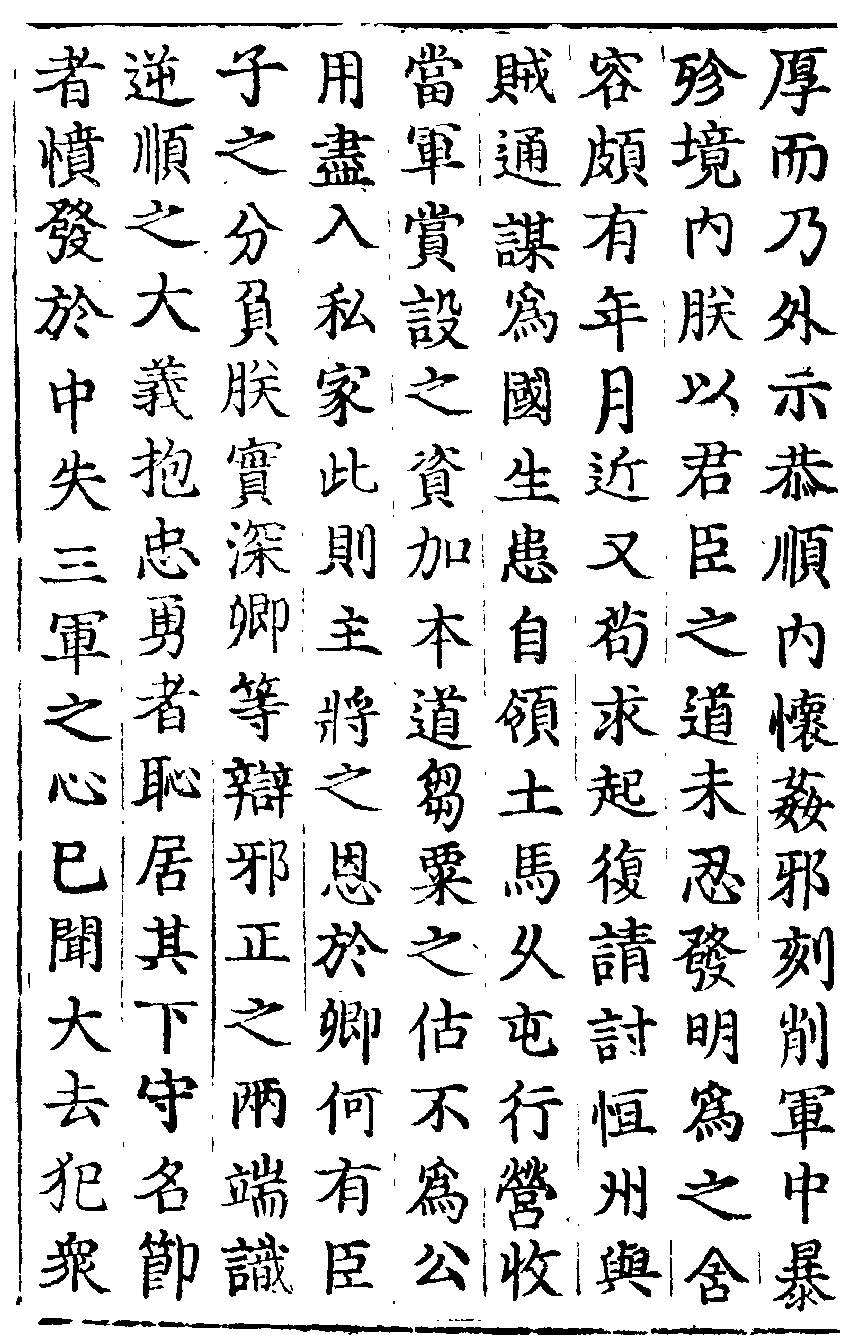 厚而乃外示恭順内懷姦邪刻削軍中暴
殄境内朕以君臣之道未忍發明爲之含
容頗有年月近又茍求起復請討恒州與
賊通謀爲國生患自領士馬久屯行營收
當軍賞設之資加本道芻粟之估不爲公
用盡入私家此則主將之恩於卿何有臣
子之分負朕實深卿等辯邪正之兩端識
逆順之大義抱忠勇者恥居其下守名節
者憤發於中失三軍之心已聞大去犯衆